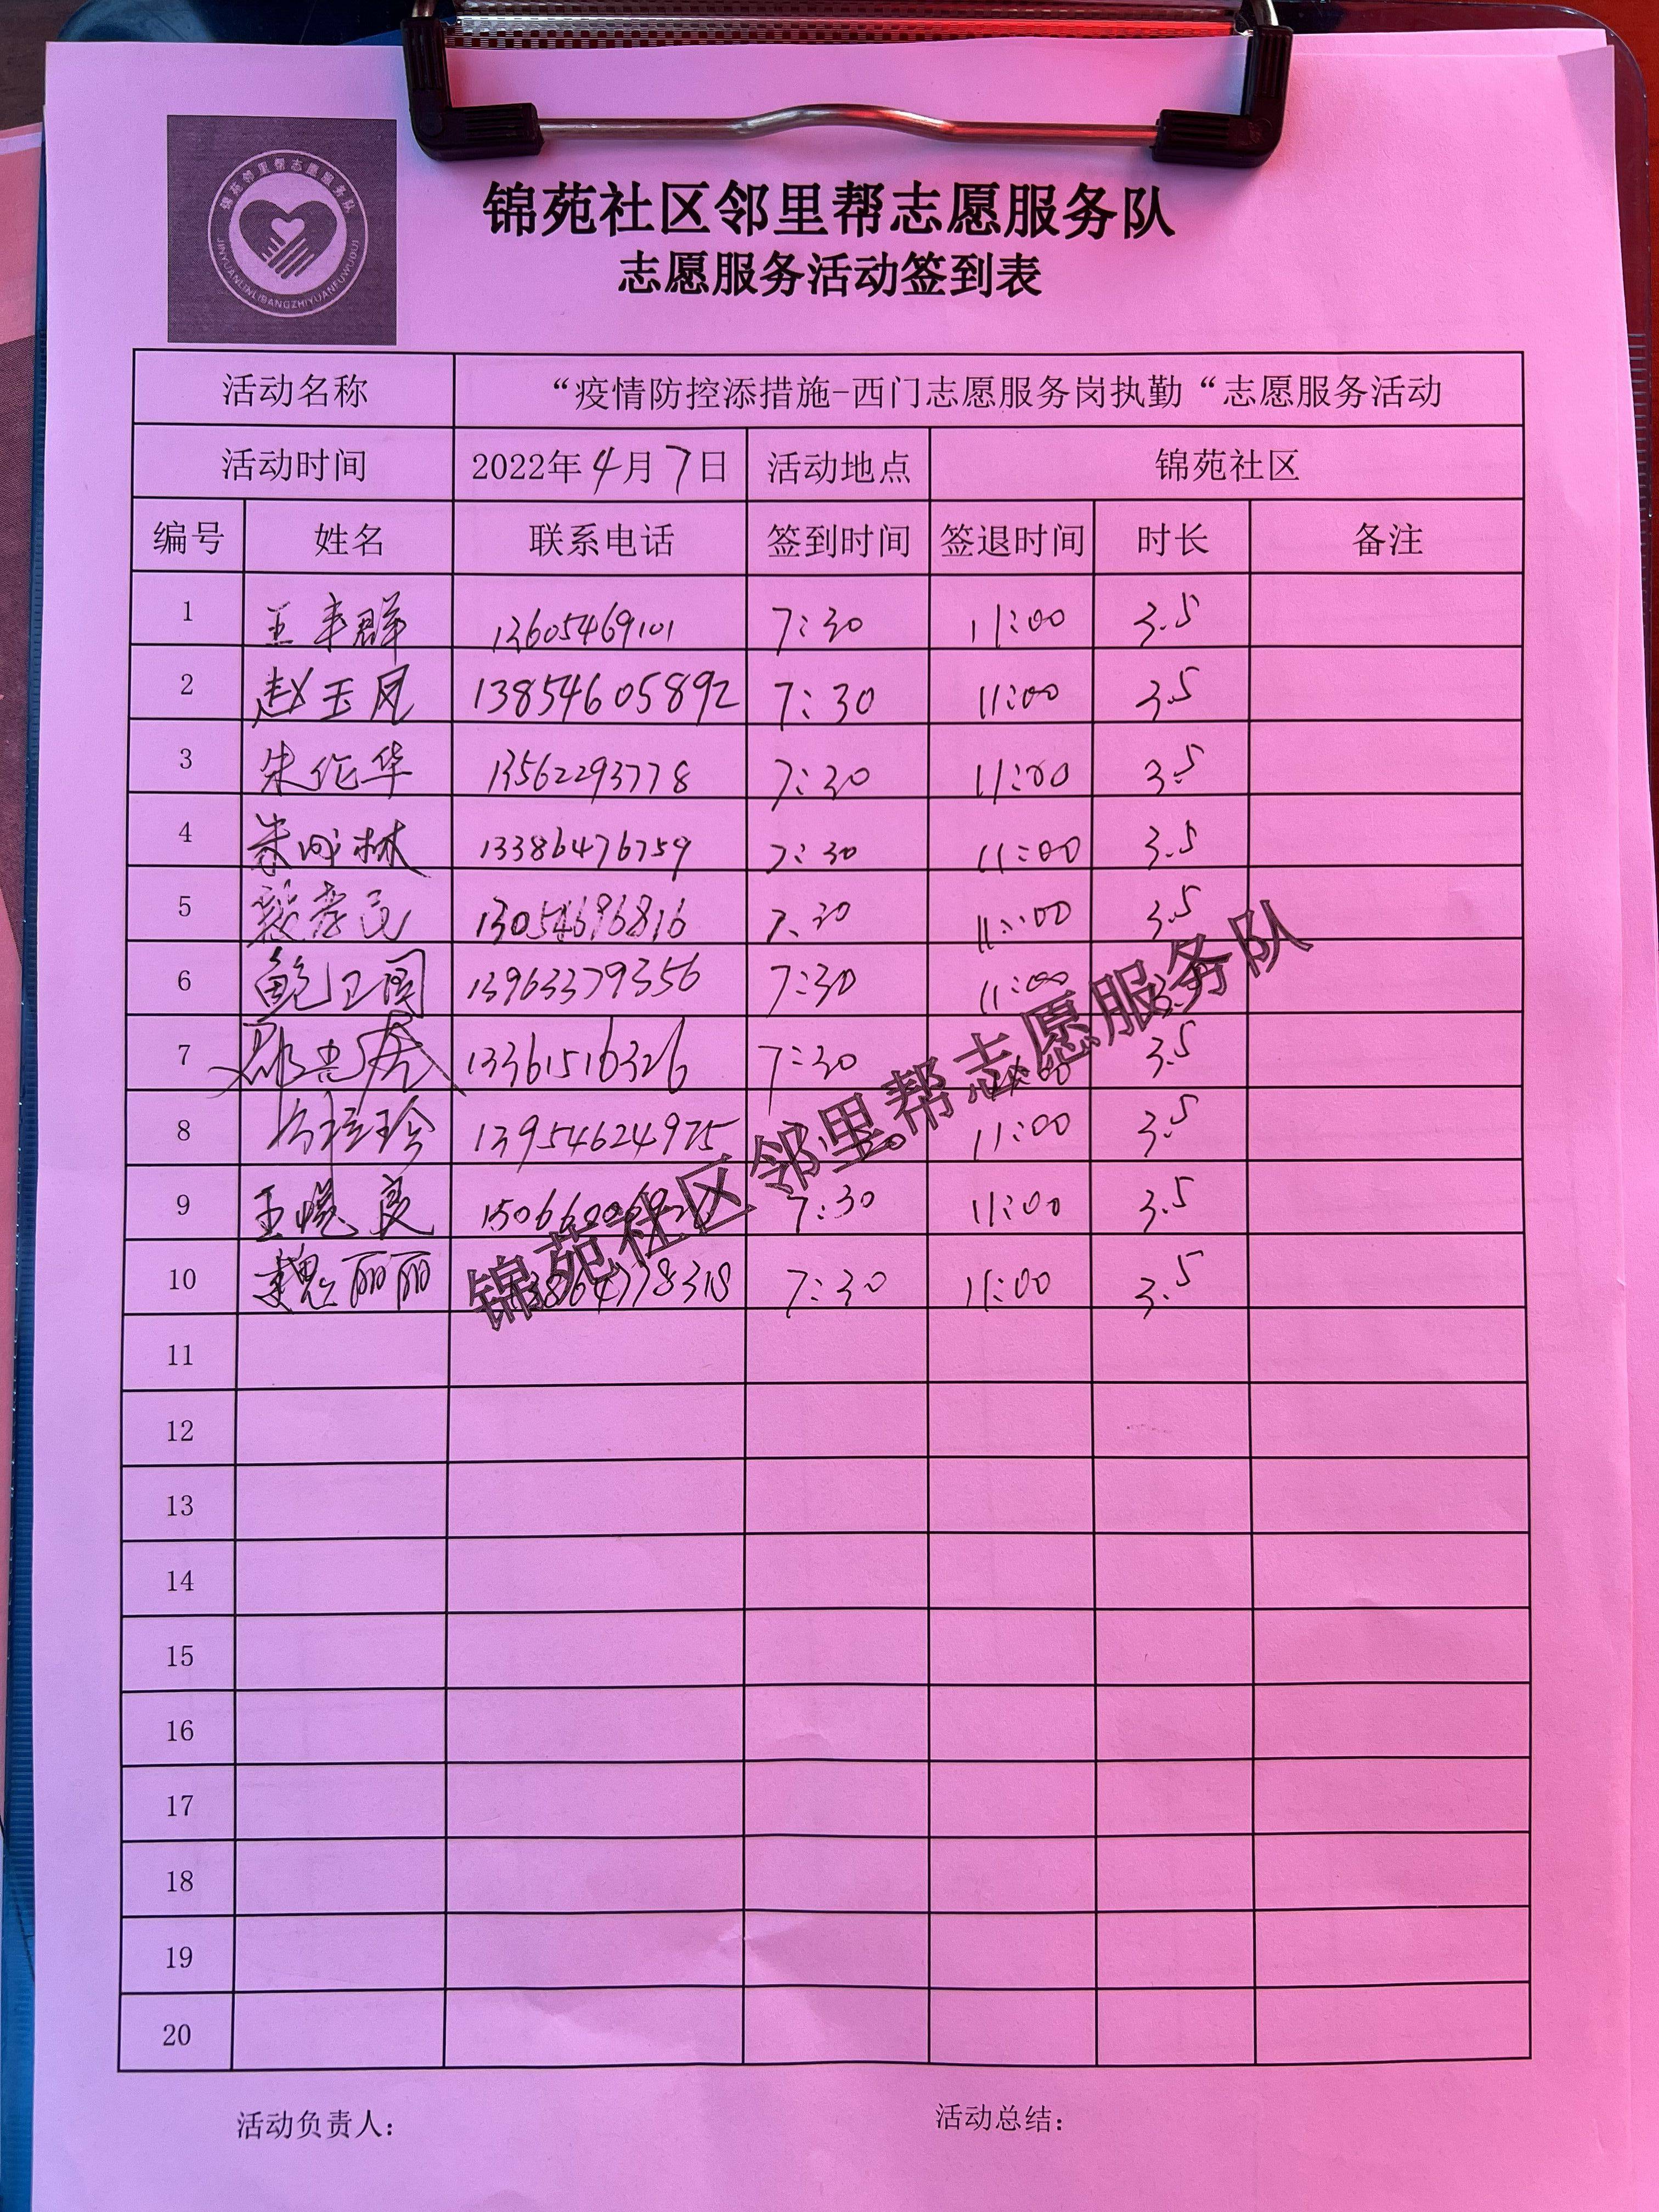 锦苑邻里帮志愿服务队
JINYUANLINLIBANGZHIYUANFUWUDUI
锦苑社区邻里帮志愿服务队
志愿服务活动签到表
活动名称 “疫情防控添措施-西门志愿服务岗执勤“志愿服务活动
活动时间 2022年4月7日 活动地点 锦苑社区
编号 姓名 联系电话 签到时间 签退时间 时长 备注
1 王丰群 13605469101 7:30 11:00 3.5
2 赵玉凤 13854605892 7:30 11:00 3.5
3 朱伦华 13562293778 7:30 11:00 3.5
4 朱成林 13386476759 7:30 11:00 3.5
5 13054696816 7:30 11:00 3.5
6 鲍卫国 13963379356 7:30 11:00
7 13361516326 7:30 11:00 3.5
8 13954624975 11:00 3.5
9 王晓 7:30 11:00 3.5
10 魏丽丽 13864778318 7:30 11:00 3.5
锦苑社区邻里帮志愿服务队
11
12
13
14
15
16
17
18
19
20
活动负责人: 活动总结: